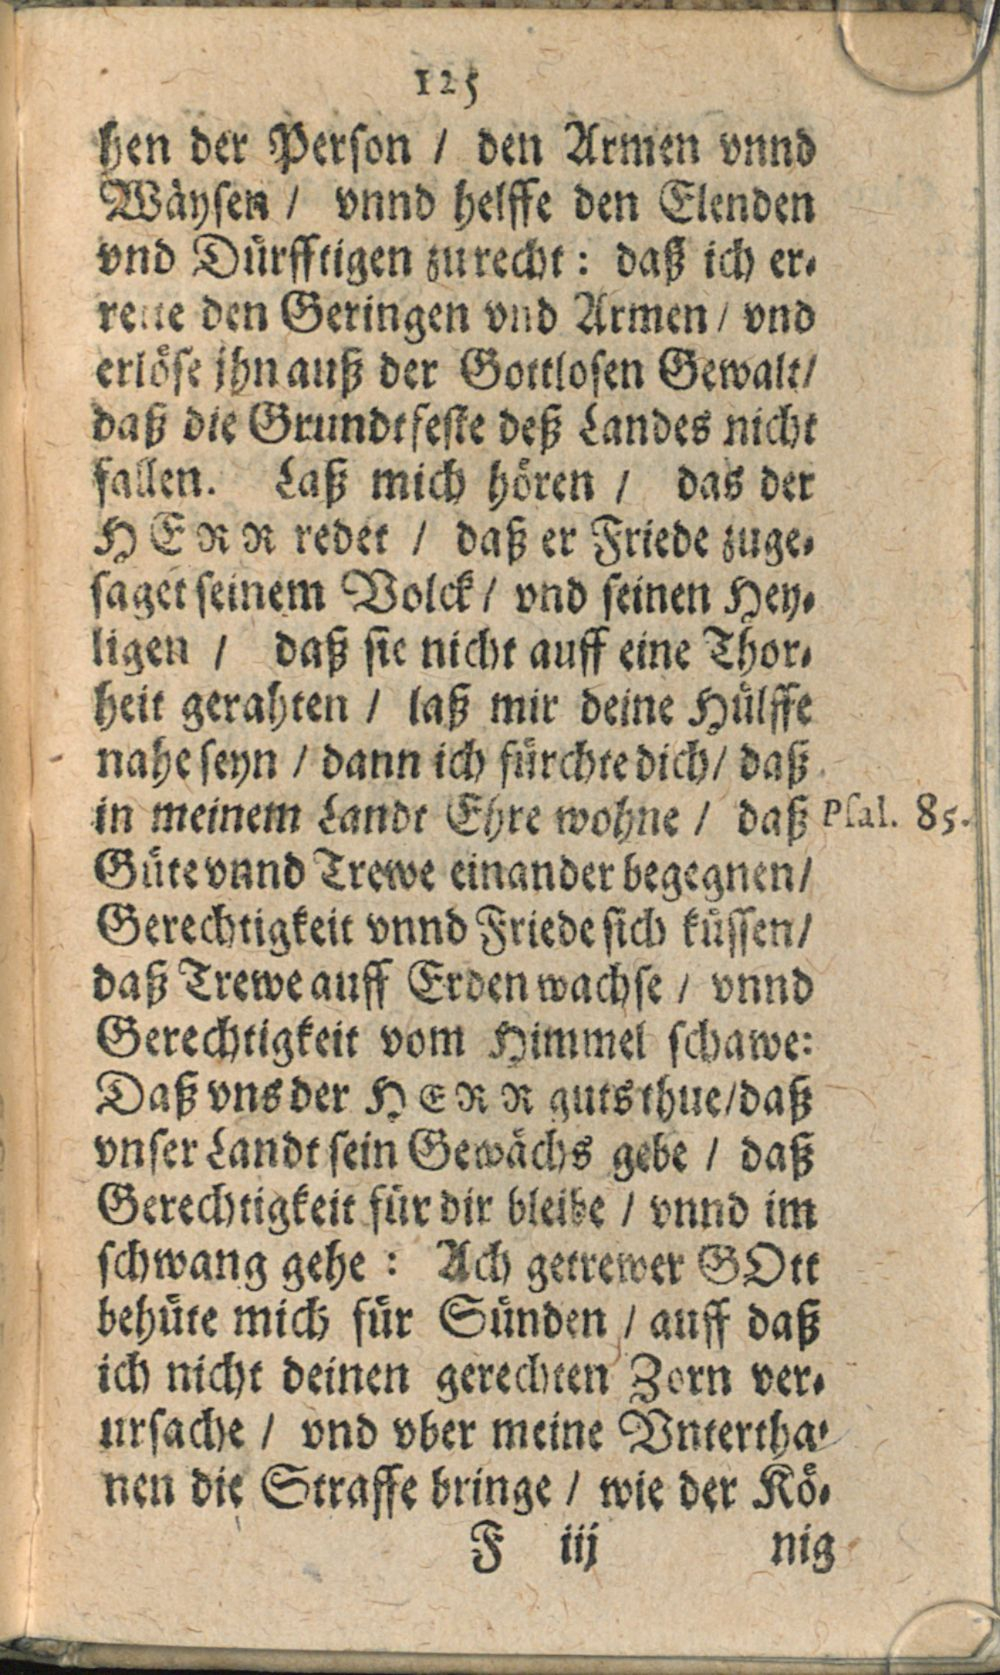 125
hen der Person / den Armen vnnd
Wäysen / vnnd helffe den Elenden
vnd Dürfftigen zu recht: daß ich er-
rette den Geringen vnd Armen / vnd
erlöse jhn auß der Gottlosen Gewalt /
daß die Grundtfeste deß Landes nicht
fallen. Laß mich hören / das der
HERR redet / daß er Friede zuge-
saget seinem Volck / vnd seinen Hey-
ligen / daß sie nicht auff eine Thor-
heit gerahten / laß mir deine Hülffe
nahe seyn / dann ich fürchte dich / daß
in meinem Landt Ehre wohne / daß Psal. 85.
Güte vnnd Trewe einander begegnen /
Gerechtigkeit vnnd Friede sich küssen /
daß Trewe auff Erden wachse / vnnd
Gerechtigkeit vom Himmel schawe:
Daß vns der HERR guts thue / daß
vnser Landt sein Gewächs gebe / daß
Gerechtigkeit für dir bleibe / vnnd im
schwang gehe : Ach getrewer GOtt
behüte mich für Sünden / auff daß
ich nicht deinen gerechten Zorn ver-
ursache / vnd vber meine Vntertha-
nen die Straffe bringe / wie der Kö-
F iij nig